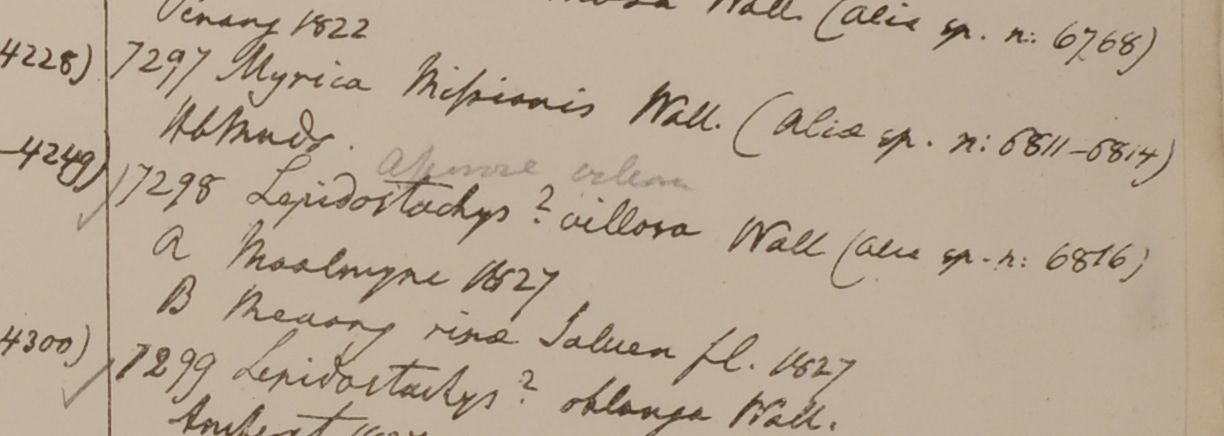 Penang 1822 Wall. (alia sp. n: 6768)
4228) 7297 Myrica Missionis Wall. (alia sp. n: 6811-6814)
Hb Madr.
-4249) 7298 Lepidostachys? villosa Wall (alia sp. n: 6816)
A Moalmyne 1827
B ripa Saluen fl. 1827
4300) 7299 Lepidostachys? oblonga Wall.
Amherst 1827